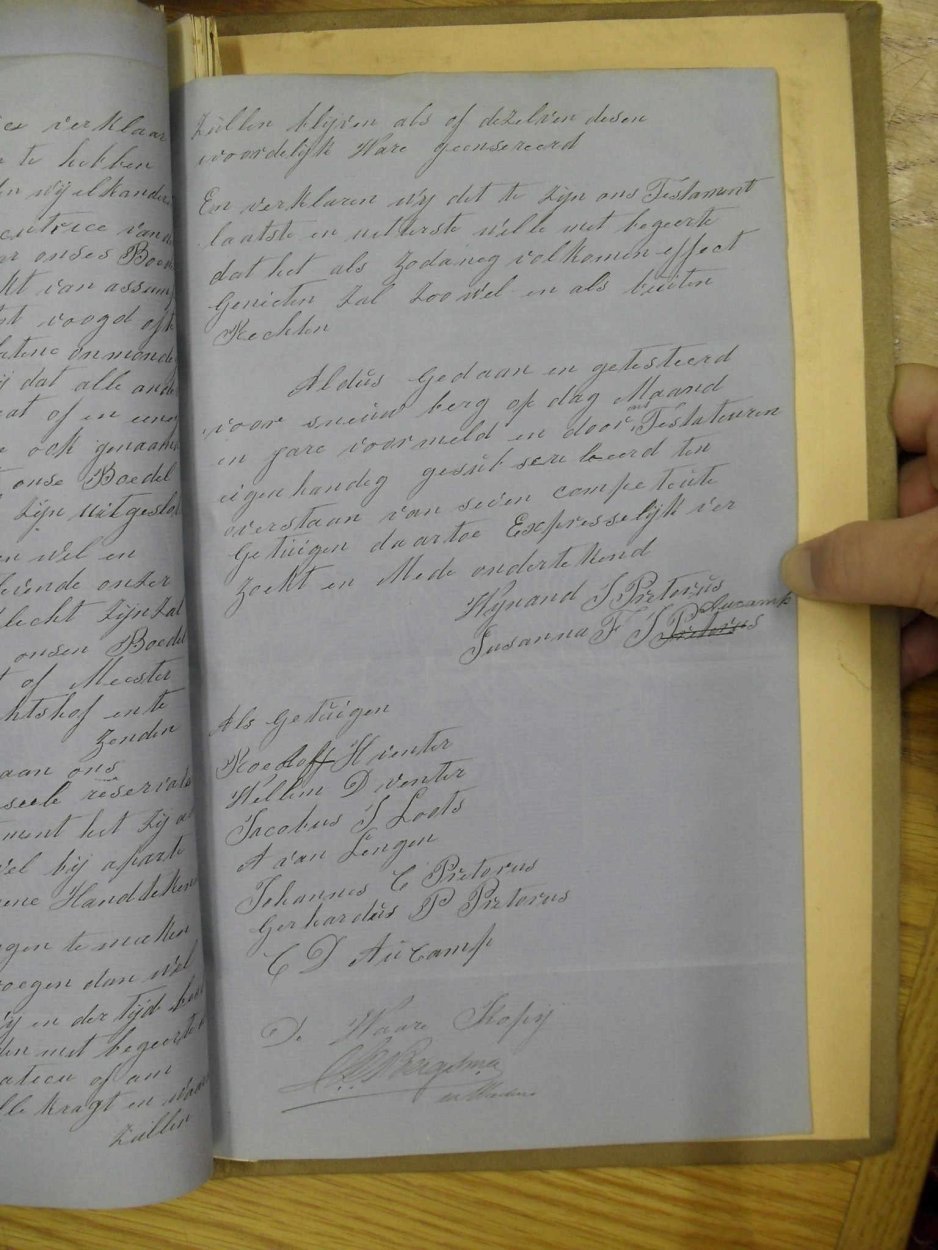 ce verklaar
te hebben
wij elkander
cutrice van de
onses Boed
kt van assum
voogd of
latene onmonde
dat alle and
at of in eenig
ook genaam
onse Boedel
zijn uitgeslo
en wel en
levende onzer
slecht zijn zal
onsen Boedel
of Meester
chtshof en te
zenden
aan ons
reserval
ment het zij a
vel bij aparte
ene Handteken
gen te maken
voegen dan wel
wij en der tijd
den met begeerte
of am
lle kragt en waar
Zullen
Zullen blijven als of dezelven desen
woordelijk Hare geensereerd
En verklaren wij det te zijn ons Testament
laatste en uiterste wille met begeerte
dat het als zodaneg volkomen effect
genieten zal zoo wel en als buiten
Rechten
Aldus gedaan en getesteerd
voor snieuw berg op dag Maand
en jare voormeld en door ons Testateuren
eigenhandeg gesubscrebeerd ten
overstaan van seven competente
getuigen daartoe Expresselijk ver
zoekt en Mede ondertekend
Wynand S Pretorius
Susanna F S Pretorius Aucamp
Als getuigen
Roeloff H venter
Willem D venter
Jacobus S Loots
A van Lengen
Johannes C Pretorus
Gerhardus P Pretorus
C D Aucamp
De Waare Khopij